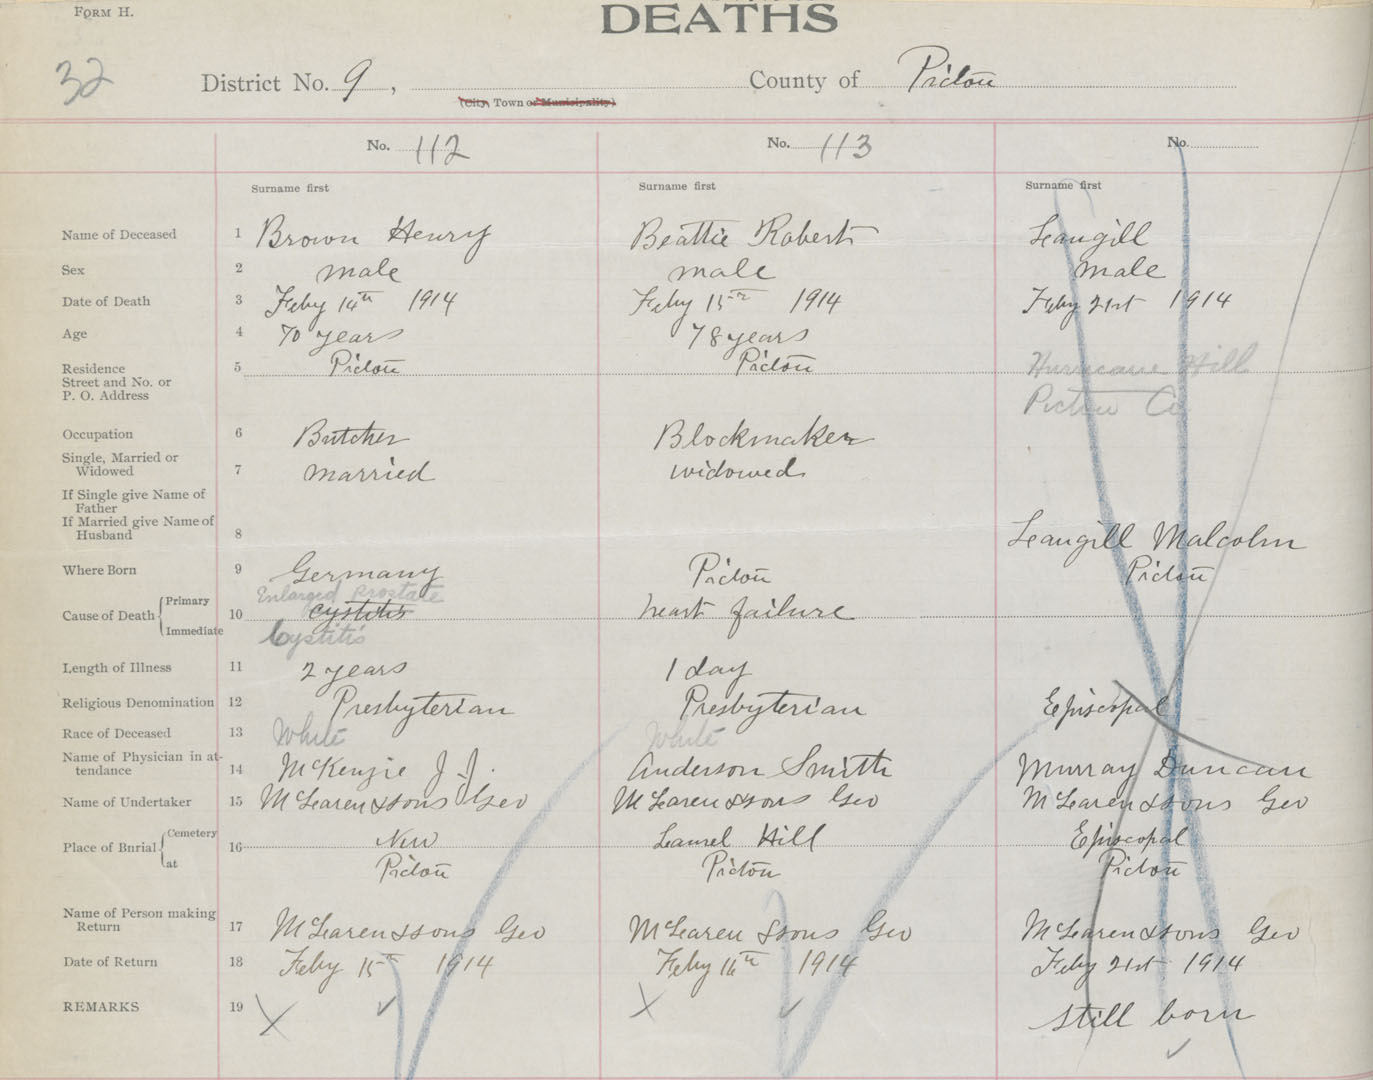 FORM H.
DEATHS
32
District No. 9 , County of Pictou
(City, Town or Municipality)
No. 112 No. 113 No.
Surname first Surname first Surname first
Name of Deceased 1 Brown Henry Beattie Robert Langill
Sex 2 male male male
Date of Death 3 Feby 14th 1914 Feby 15th 1914 Feby 21st 1914
Age 4 70 years 78 years
Residence 5 Pictou Pictou Hurricane Hill
Street and No. or
P. O. Address Pictou Co
Occupation 6 Butcher Blockmaker
Single, Married or
Widowed 7 married widowed
If Single give Name of
Father
If Married give Name of
Husband 8 Langill Malcolm
Where Born 9 Germany Pictou Pictou
Enlarged prostate
Cause of Death Primary 10 cystitis heart failure
Immediate Cystitis
Length of Illness 11 2 years 1 day
Religious Denomination 12 Presbyterian Presbyterian Episcopal
Race of Deceased 13 White White
Name of Physician in at-
tendance 14 McKenzie J. J. Anderson Smith Murray Duncan
Name of Undertaker 15 McLaren & sons Geo McLaren & sons Geo McLaren & sons Geo
Place of Burial Cemetery 16 New Laurel Hill Episcopal
at Pictou Pictou Pictou
Name of Person making
Return 17 McLaren & sons Geo McLaren & sons Geo McLaren & sons Geo
Date of Return 18 Feby 15th 1914 Feby 16th 1914 Feby 21st 1914
REMARKS 19 X ✓ X ✓ still born
✓